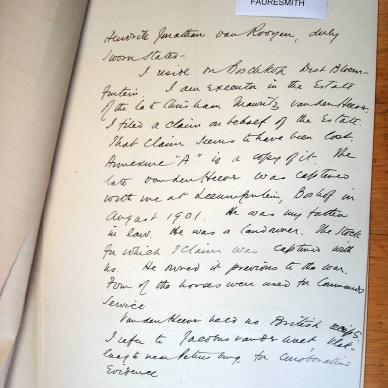 FAURESMITH
Hendrik Jonathan van Rooyen, duly
Sworn States-
I reside on Boschkop Dist Bloem-
fontein. I am executor in the Estate
of the late Christiaan Mauritz van den Heever.
I filed a claim on behalf of the Estate.
That claim seems to have been lost.
Annexure "A" is a copy of it. The
late van den Heever was captured
with me at Leeuwfontein, Boshof in
August 1901. He was my father
in law. He was a landowner. The Stock
for which I claim was captured with
us. He owned it previous to the war.
Four of the horses were used for Commando
Service
Van den Heever held no British receipts
I refer to Jacobus van der Walt
near Petrusburg for corroborative
Evidence